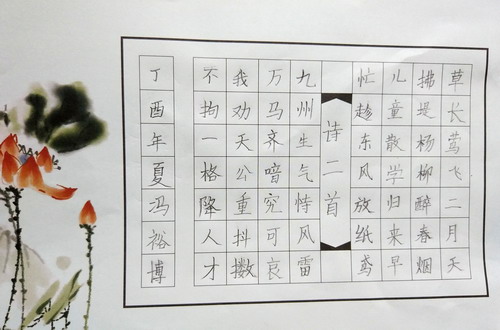 草长莺飞二月天
拂堤杨柳醉春烟
儿童散学归来早
忙趁东风放纸鸢
诗二首
九州生气恃风雷
万马齐喑究可哀
我劝天公重抖擞
不拘一格降人才
丁酉年夏冯裕博